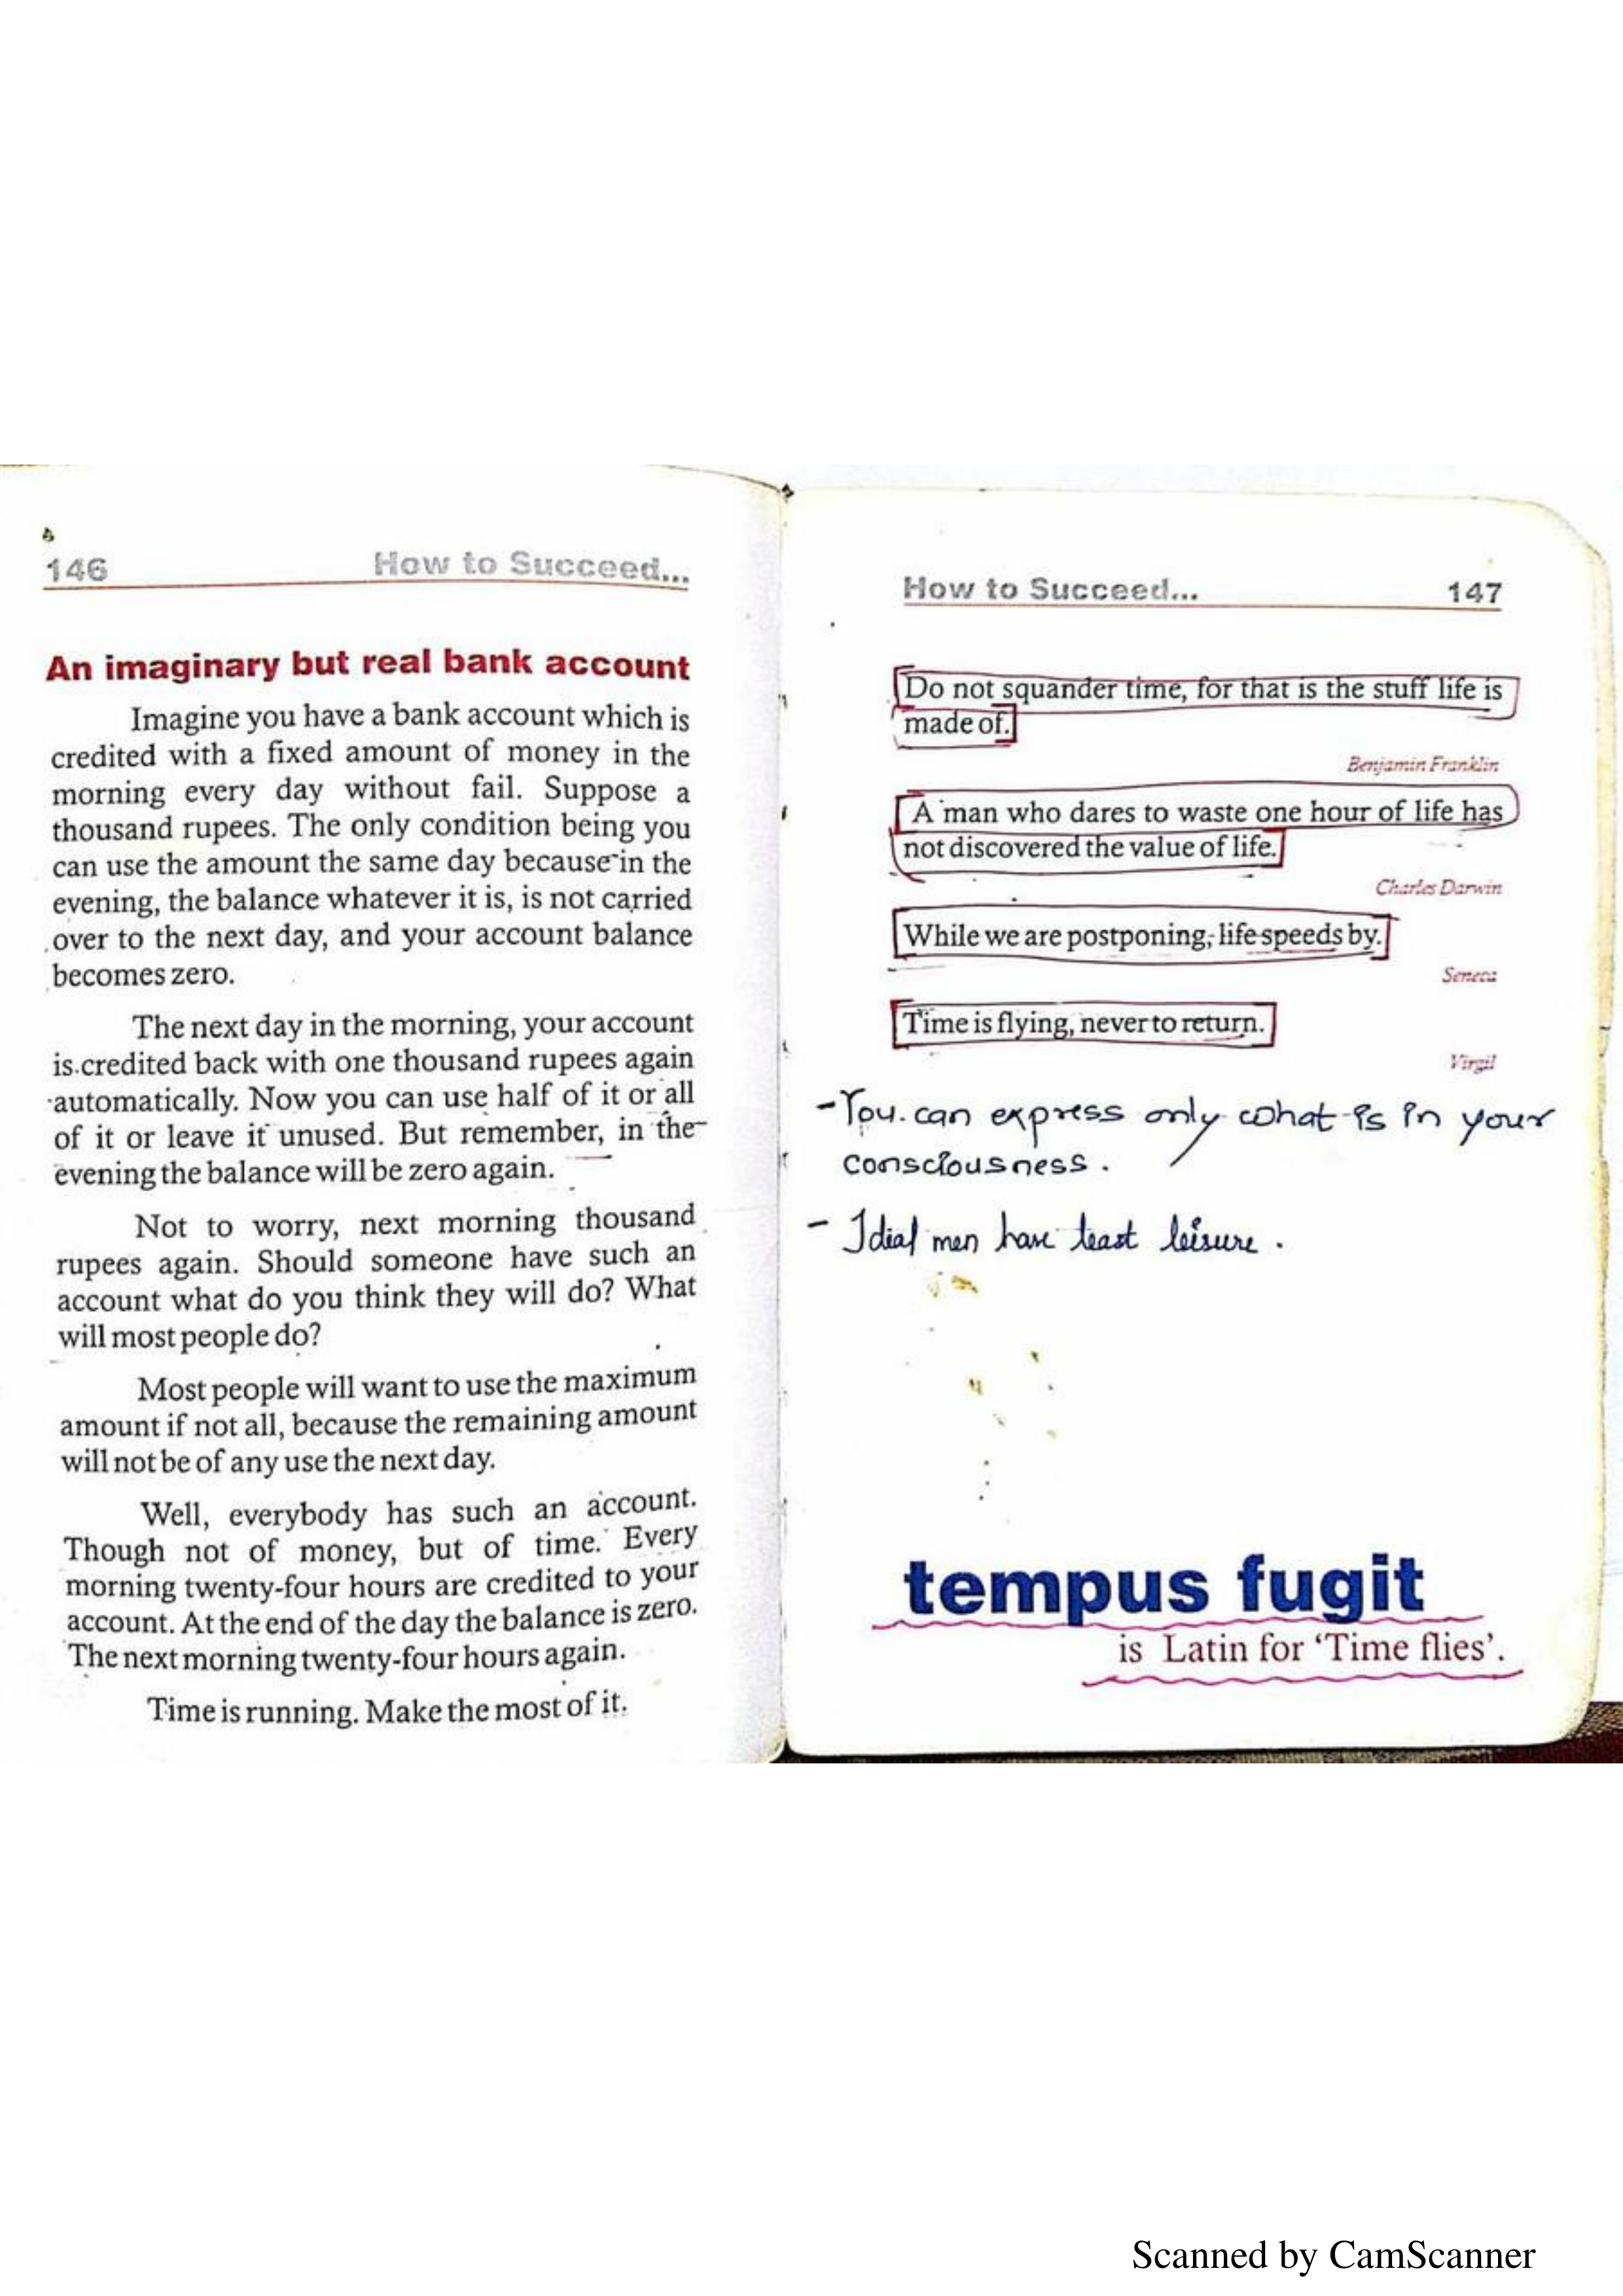 146 How to Succeed...
An imaginary but real bank account
Imagine you have a bank account which is
credited with a fixed amount of money in the
morning every day without fail. Suppose a
thousand rupees. The only condition being you
can use the amount the same day because in the
evening, the balance whatever it is, is not carried
over to the next day, and your account balance
becomes zero.
The next day in the morning, your account
is credited back with one thousand rupees again
automatically. Now you can use half of it or all
of it or leave it unused. But remember, in the
evening the balance will be zero again.
Not to worry, next morning thousand
rupees again. Should someone have such an
account what do you think they will do? What
will most people do?
Most people will want to use the maximum
amount if not all, because the remaining amount
will not be of any use the next day.
Well, everybody has such an account.
Though not of money, but of time. Every
morning twenty-four hours are credited to your
account. At the end of the day the balance is zero.
The next morning twenty-four hours again.
Time is running. Make the most of it.
How to Succeed... 147
Do not squander time, for that is the stuff life is
made of.
Benjamin Franklin
A man who dares to waste one hour of life has
not discovered the value of life.
Charles Darwin
While we are postponing, life speeds by.
Seneca
Time is flying, never to return.
Virgil
- You can express only what is in your
consciousness.
- Idial men have least leisure.
tempus fugit
is Latin for 'Time flies'.
Scanned by CamScanner